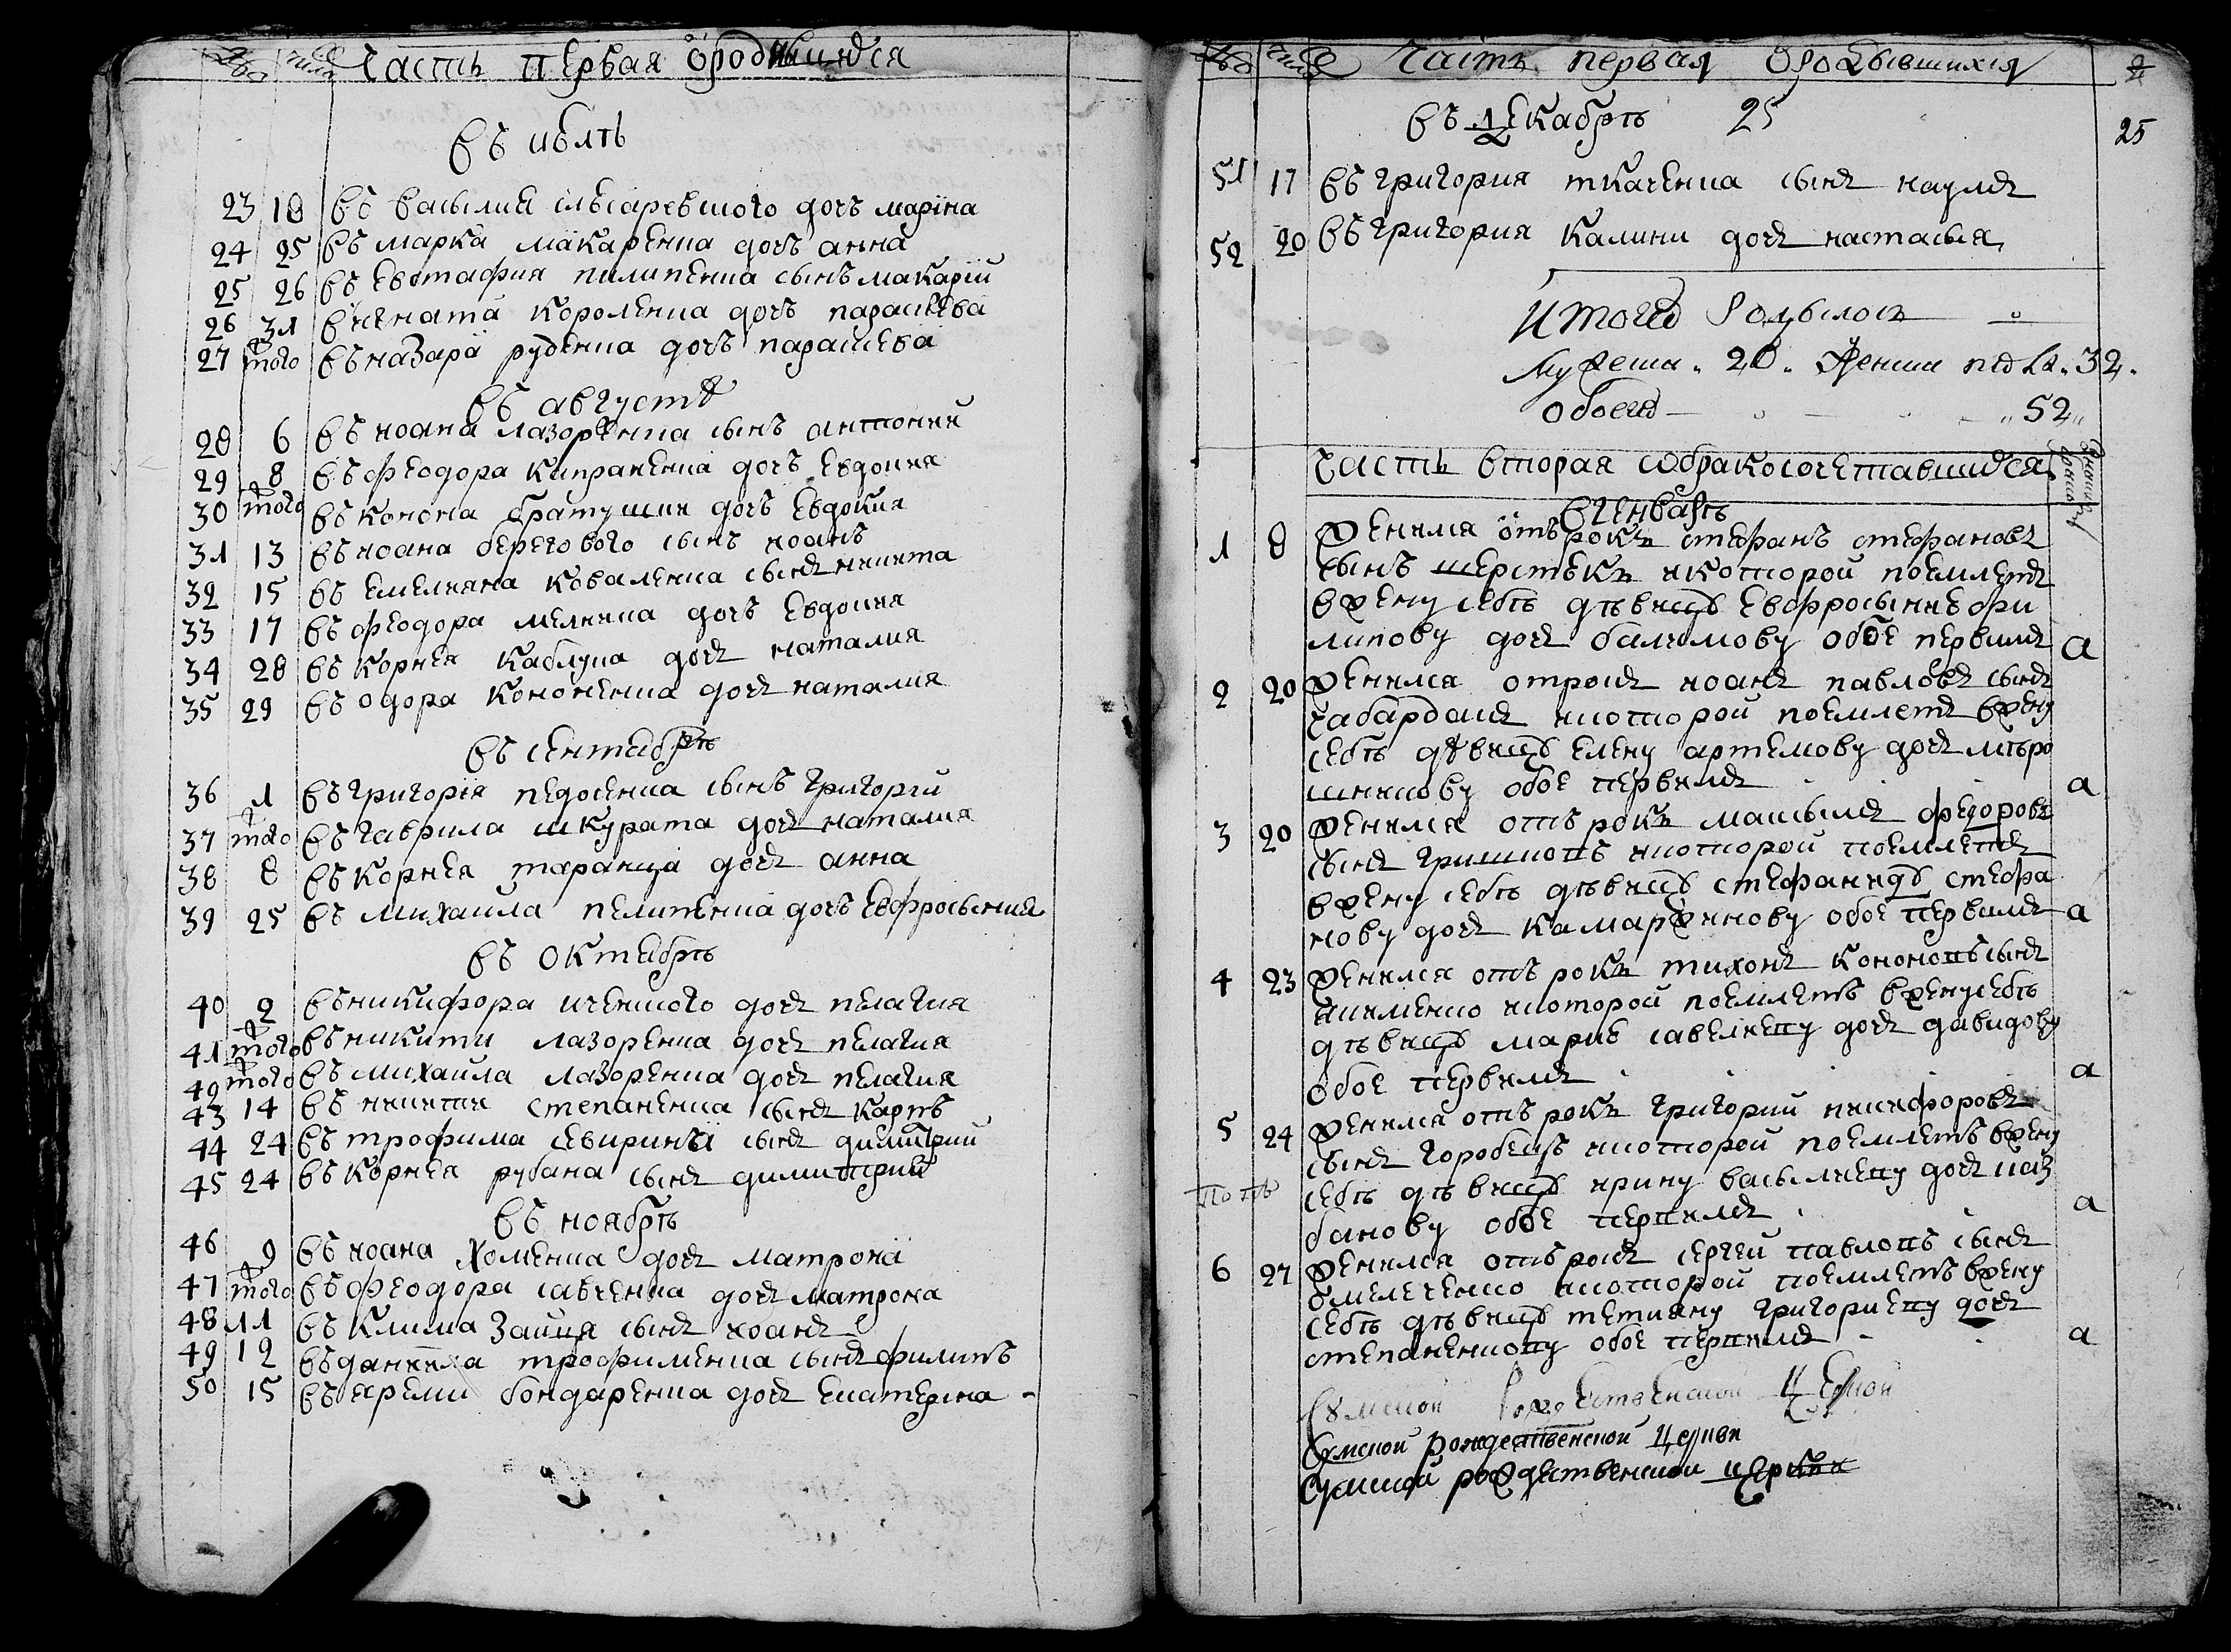 Часть первая ородившихся
въ июлѣ
23 18 въ василия слѣсаревшого дочъ марина
24 25 въ марка макаренка дочъ анна
25 26 въ евстафия пилипенка сынъ макарій
26 31 въ игната короленка дочъ параскева
27 того въ назара руденка дочъ параскева
въ августѣ
28 6 въ иоана лазоренка сынъ антоний
29 8 въ феодора кипраненка дочъ евдокия
30 того въ конона братушки дочъ евдокия
31 13 въ иоана берегового сынъ иоанъ
32 15 въ емелиана коваленка сынъ никита
33 17 въ феодора мелника дочъ евдокия
34 28 въ корнея каблуца дочъ наталия
35 29 въ одора кононенка дочъ наталия
въ сентябрѣ
36 1 въ григорія педосенка сынъ григорій
37 того въ гаврила шкурата дочъ наталия
38 8 въ корнея таранца дочъ анна
39 25 въ михаила пелипенка дочъ евфросиния
въ октябрѣ
40 2 въ никифора дочъ пелагия
41 того въ никити лазоренка дочъ пелагия
42 того въ михаила лазоренка дочъ пелагия
43 14 въ никити степаненка сынъ карпъ
44 24 въ трофима свиринѣ сынъ димитрий
45 24 въ корнея рубана сынъ димитрий
въ ноябрѣ
46 9 въ иоана хоменка дочъ матрона
47 того въ феодора савченка дочъ матрона
48 11 въ клима зайця сынъ иоанъ
49 12 въ даниила трофименка сынъ филипъ
50 15 въ яреми бондаренка дочъ екатерина
часть первая ородившихся
25
въ декабрѣ 25
51 17 въ григория ткаченка сынъ наумъ
52 20 въ григория калини дочъ настасия
Итого родилось
Мужеска 20 Женска полу 32
обоего 52
Часть вторая собракосочетавшихся
вгенварѣ
1 8 женился отърокъ стефанъ стефановъ
сынъ шерстюкъ икоторой поемлетъ
вжену себѣ дѣвицу евфросинию фи
липову дочъ балимову обое первимъ а
2 20 женился отрокъ иоанъ павловъ сынъ
икоторой поемлетъ вжену
себѣ дѣвицу елену артемову дочъ мѣро
шникову обое первимъ а
3 20 женился отърокъ максимъ федоровъ
сынъ икоторой поемлетъ
вжену себѣ дѣвицу стефаниду стефа
нову дочъ камаржинову обое первимъ а
4 23 женился отърокъ тихонъ кононовъ сынъ
якименко икоторой поемлетъ вжену себѣ
дѣвицу марию савелиеву дочъ давидову
обое первимъ а
5 24 женился отърокъ григорий никифоровъ
сынъ горобецъ икоторой поемлетъ вжену
себѣ дѣвицу ирину василиеву дочъ каз
банову обое первимъ а
6 27 женился отърокъ сергей павловъ сынъ
омелеченко икоторой поемлетъ вжену
себѣ дѣвицу тетияну григориеву дочъ
степаненкову обое первимъ а
сумской рождественской церкви
сумской рождественской церкви
сумской рождественской церкви